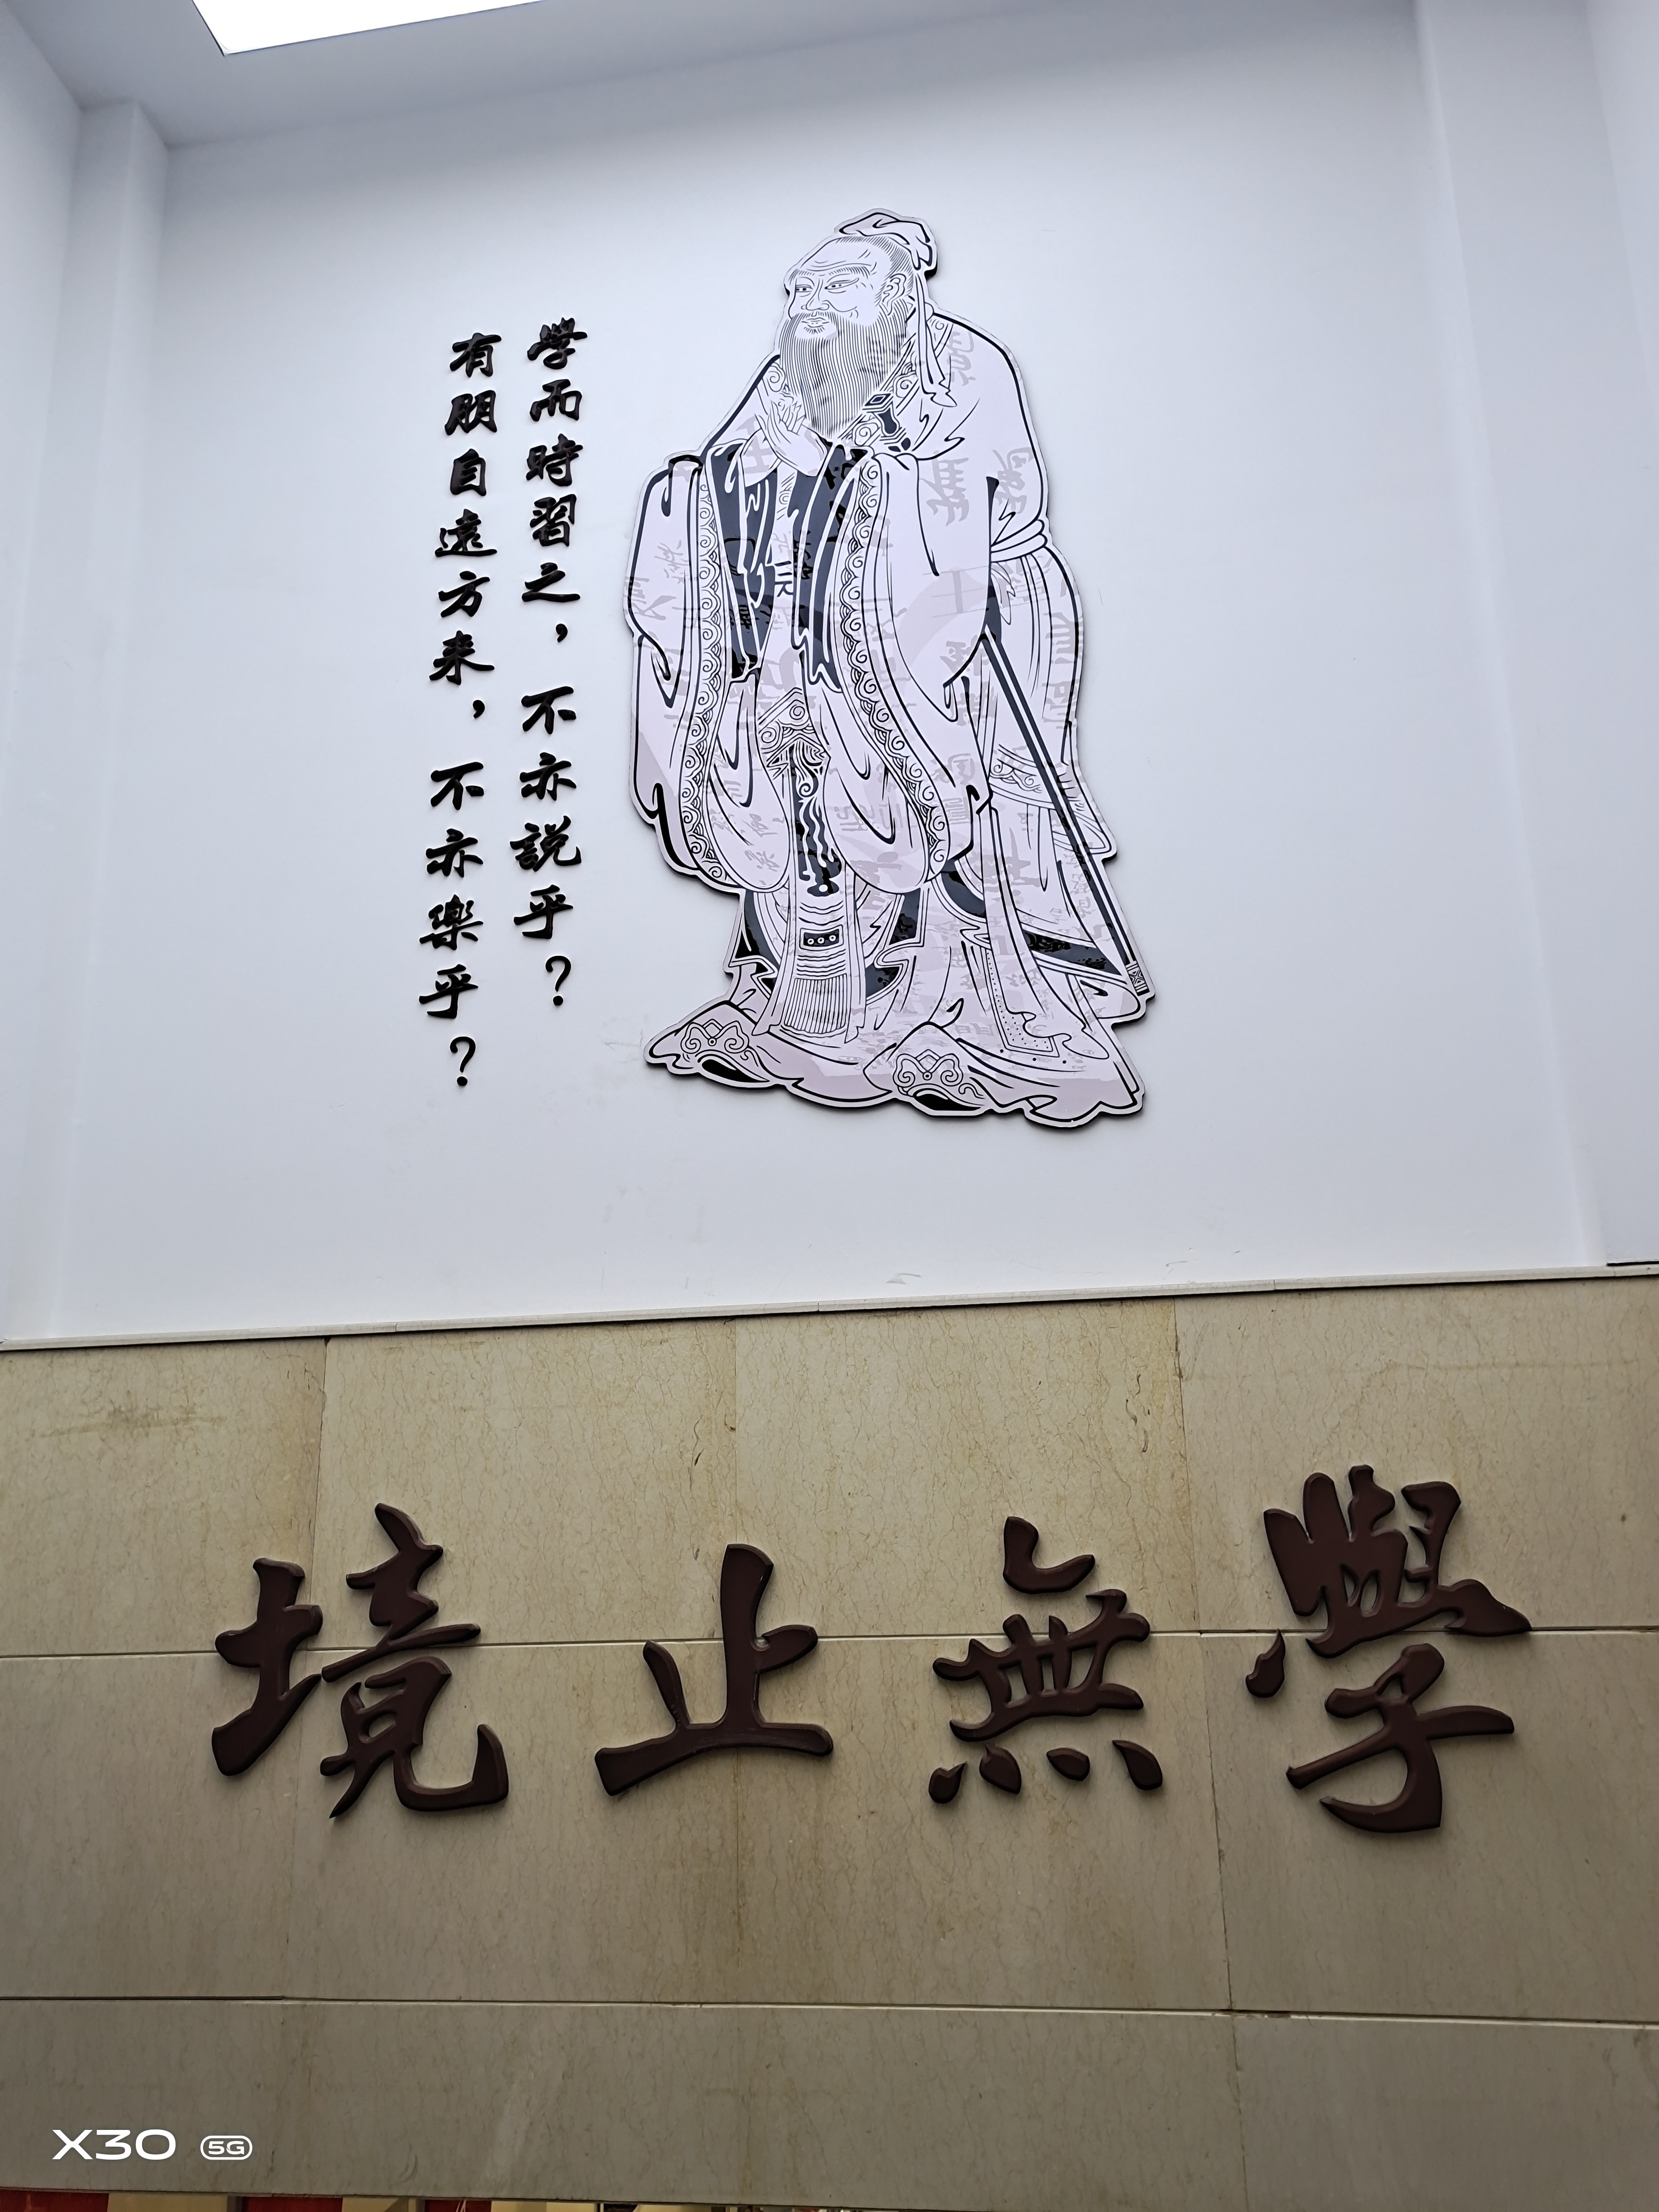 學而時習之，不亦説乎？
有朋自遠方来，不亦樂乎？
學無止境
X30 5G